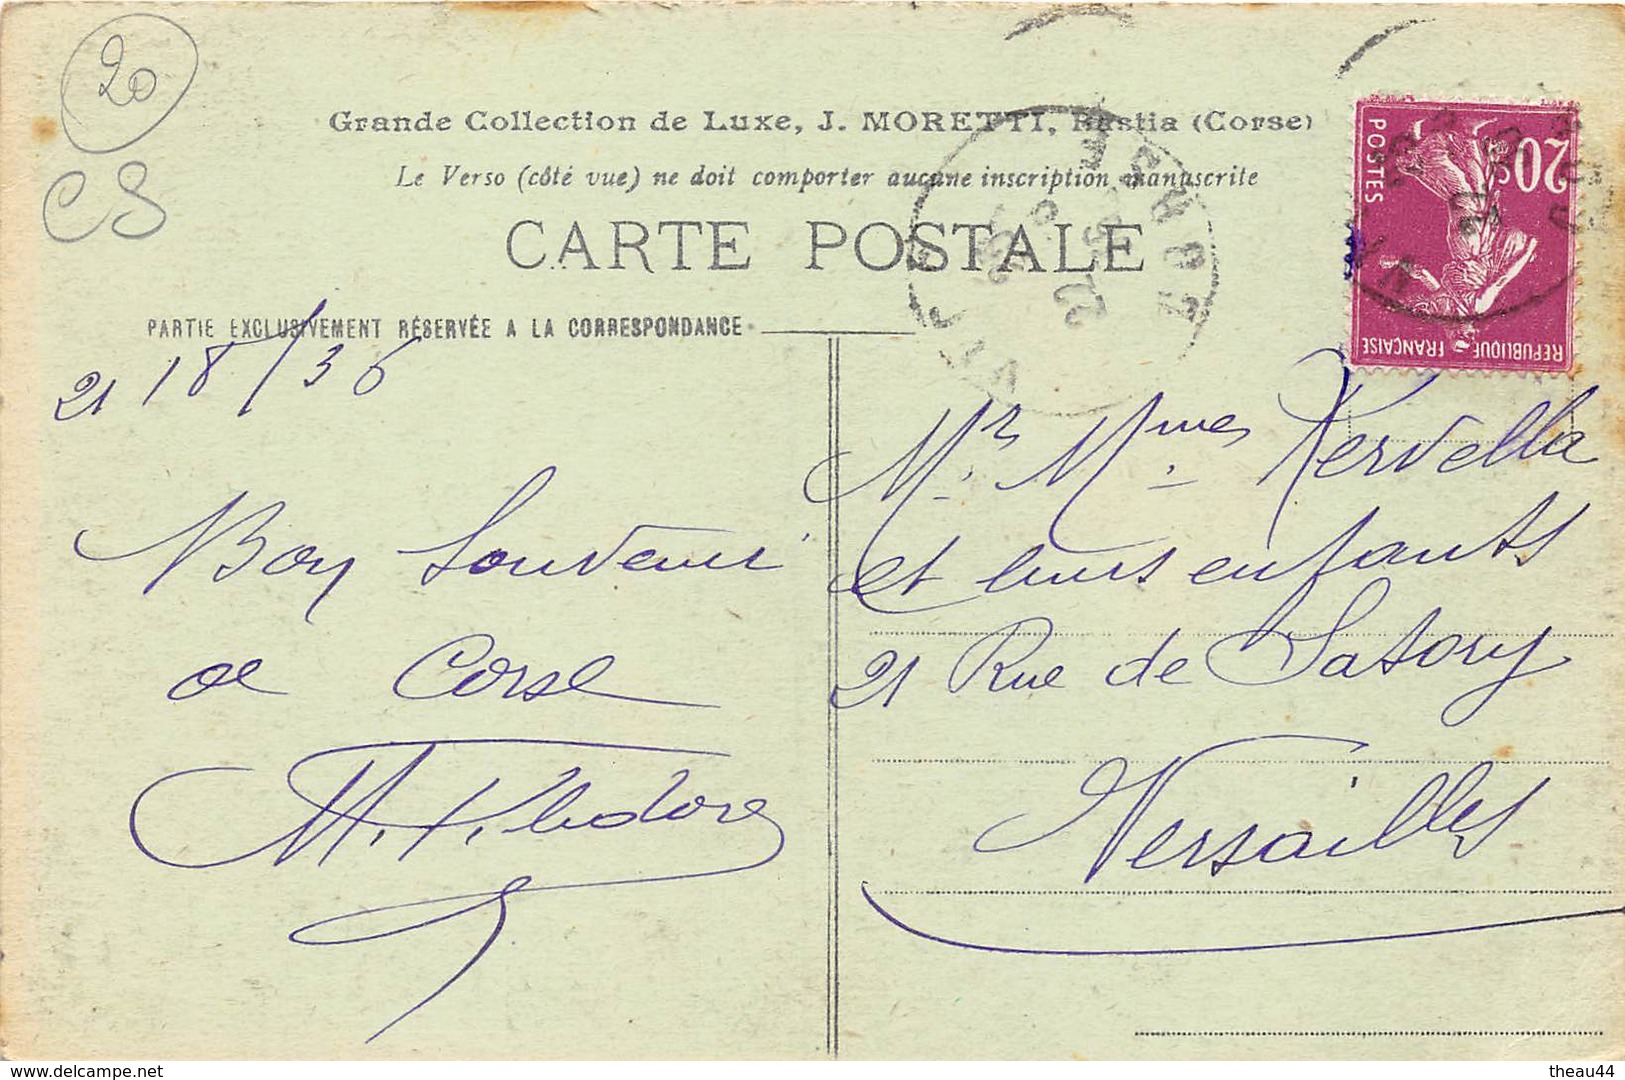 20
CS
Grande Collection de Luxe, J. MORETTI, Bastia (Corse)
Le Verso (côté vue) ne doit comporter aucune inscription manuscrite
CARTE POSTALE
PARTIE EXCLUSIVEMENT RÉSERVÉE A LA CORRESPONDANCE
POSTES
20c
REPUBLIQUE FRANÇAISE
21 18/36
Bon Souvenir
de Corse
Mr. Mmes Kervella
et leurs enfants
21 Rue de Satory
Versailles
www.delcampe.net
theau44